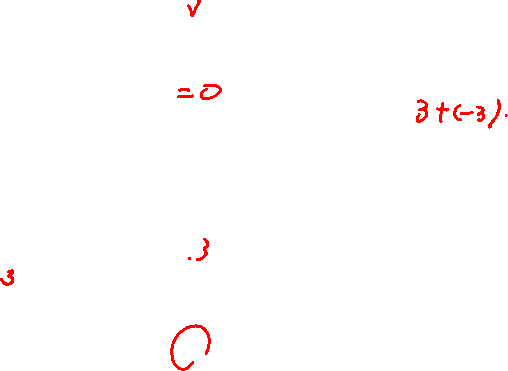 =0
3+(-3).
.3
3